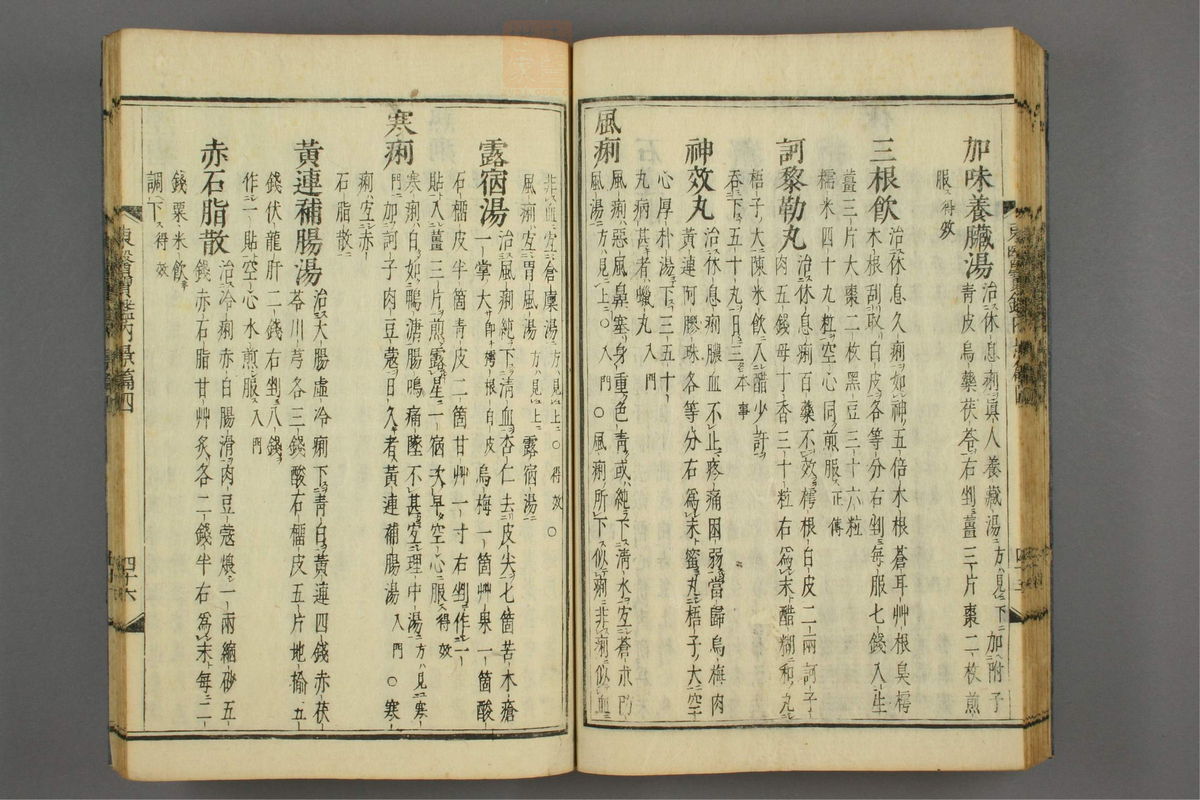 加味養臟湯治休息痢眞人養藏湯方見下加附子
青皮烏藥茯苓右剉薑三片棗二枚煎
服得效
三根飮治休息久痢如神五倍木根蒼耳艸根臭樗
木根刮取白皮各等分右剉每服七錢入生
薑三片大棗二枚黑豆三十六粒
糯米四十九粒空心同煎服正傳
訶黎勒丸治休息痢百藥不效樗根白皮二兩訶子
肉五錢母丁香三十粒右爲末醋糊和丸
梧子大陳米飮入醋少許
吞下五十丸日三本事
神效丸治休息痢膿血不止疼痛困弱當歸烏梅肉
黃連阿膠珠各等分右爲末蜜丸梧子大空
心厚朴湯下三五十
丸病甚者蠟丸入門
風痢風痢惡風鼻塞身重色靑或純下淸水宜蒼朮防
風湯方見上入門○風痢所下似痢非痢似血
非血宜倉廩湯方見上○得效○
風痢宜胃風湯方見上露宿湯
露宿湯治風痢純下淸血杏仁去皮尖七箇苦木瘡
一掌大卽樗根白皮烏梅一箇艸果一箇酸
石榴皮半箇靑皮二箇甘艸一寸右剉作一
貼入薑三片煎露星一宿次早空心服得效
寒痢寒痢白如鴨溏腸鳴痛墜不甚宜理中湯方見寒
門加訶子肉豆蔻日久者黃連補腸湯入門○寒
痢宜赤
石脂散
黃連補腸湯治大腸虛冷痢下靑白黃連四錢赤茯
苓川芎各三錢酸石榴皮五片地楡五
錢伏龍肝二錢右剉八錢
作一貼空心水煎服入門
赤石脂散治冷痢赤白腸滑肉豆蔻煨一兩縮砂五
錢赤石脂甘艸炙各二錢半右爲末每二
錢粟米飮
調下得效
東醫寶鑑內景篇四
四十六